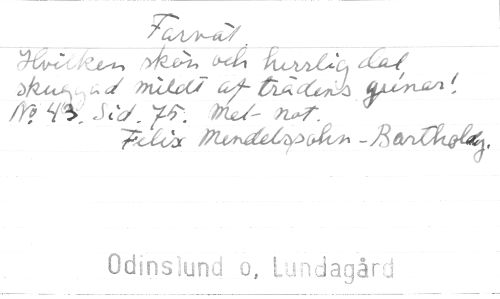 Farväl
Hvilken skön och herrlig dal
skuggad mildt af trädens grenar!
No 43. Sid. 75. Mel- not.
Felix Mendelssohn - Bartholdy.
Odinslund o, Lundagård